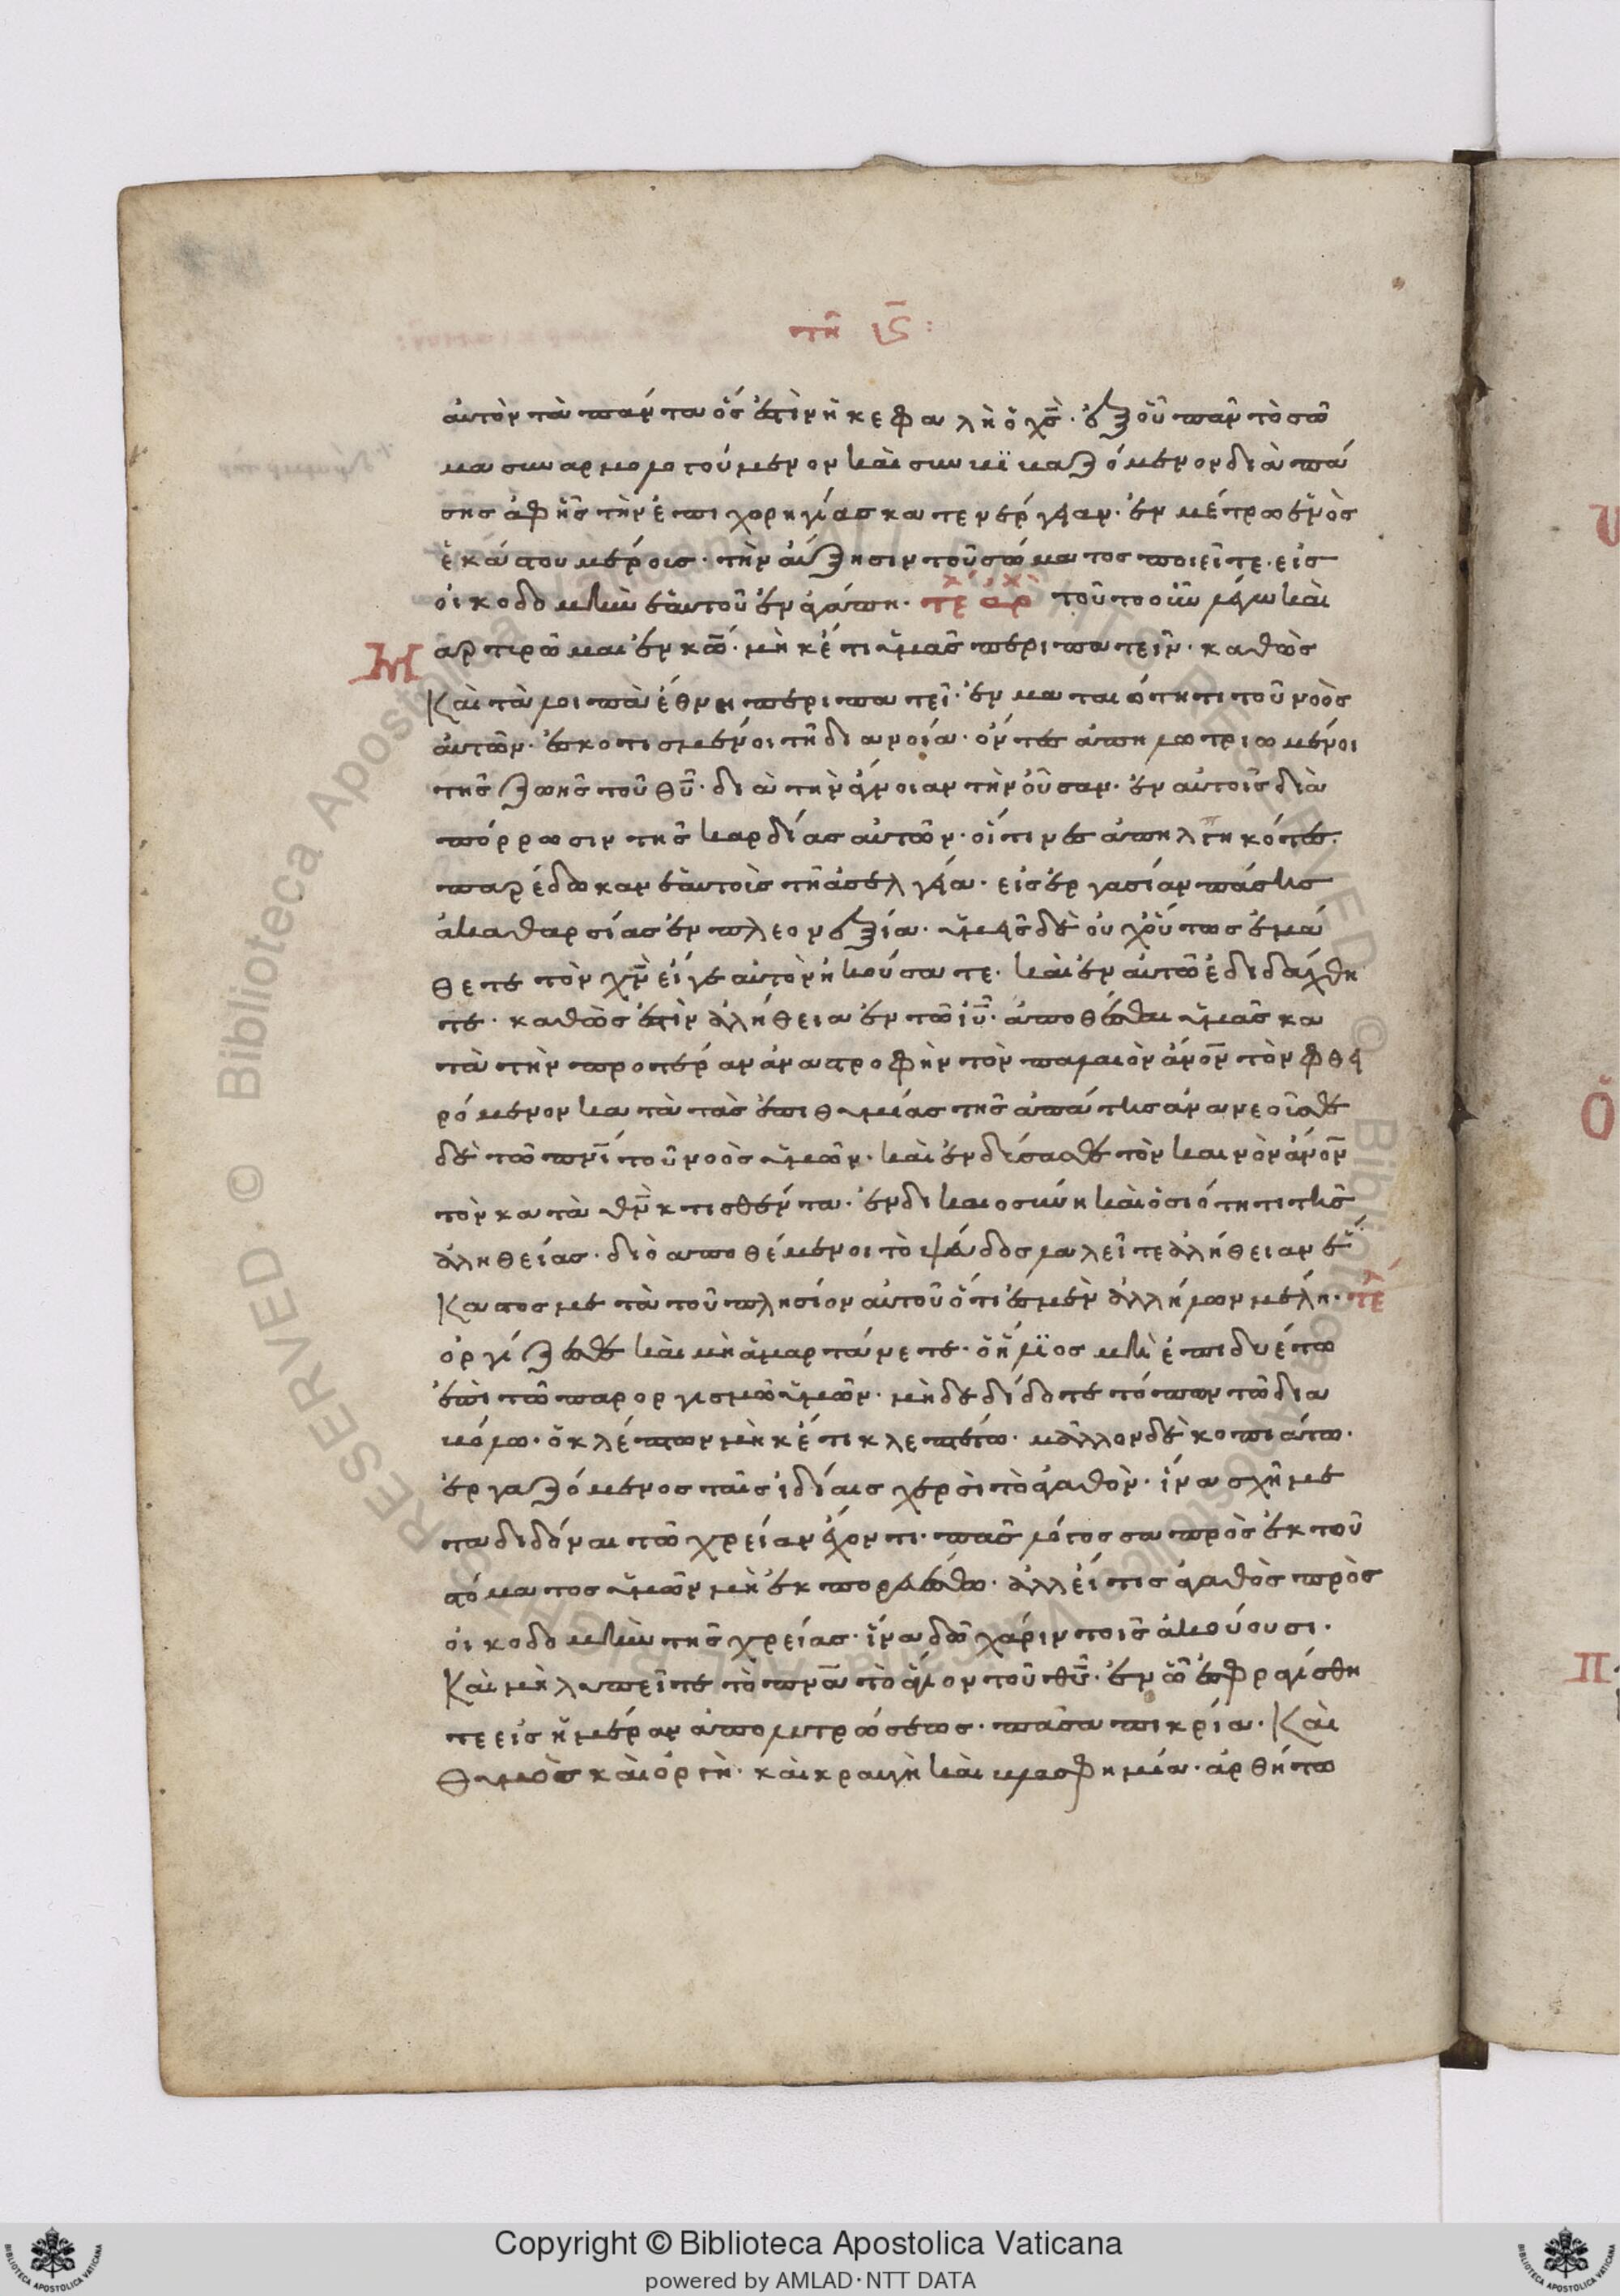 τῆ ιϛ:
αὐτὸν τὰ πάντα ὅς ἐστὶν ἡ κεφαλὴ ὁ χς̅· ἐξ οὗ πᾶν τὸ σῶ
μα συναρμολογούμενον καὶ συνβιβαζόμενον διὰ πά
σης ἁφῆς τὴν ἐπιχορηγίας κατενέργειαν· ἐν μέτρω ἑνὸς
ἑκάστου μέροις· τὴν αὔξησιν τοῦ σώματος ποιεῖτε· εἰς
οἰκοδομὴν ἑαυτοῦ ἐν ἀγάπη· τε αρχ τοῦτο οὖν λέγω καὶ
Μαρτιρῶμαι ἐν κω̅· μὴ κέτι ὑμᾶς περιπατεῖν· καθὼς
καὶ τὰ λοιπὰ ἔθνη περιπατεῖ· ἐν ματαιότητι τοῦ νοὸς
αὐτῶν· ἐσκοτισμένοι τῆ διανοία· ὄντες ἀπηλλωτριωμένοι
τῆς ζωῆς τοῦ θυ̅· διὰ τὴν ἄγνοιαν τὴν οὖσαν· ἐν αὐτοῖς διὰ
πόρρωσιν τῆς καρδίας αὐτῶν· οἵτινες ἀπηλγηκότες·
παρέδωκαν ἑαυτοὶς τῆ ἀσελγεία· εἰς ἐργασίαν πάσης
ἀκαθαρσίας ἐν πλεονεξία· ὑμεῖς δὲ οὐχ οὕτως ἐμά
θετε τὸν χν̅ εἴγε αὐτὸν ἠκούσατε· καὶ ἐν αὐτῶ ἐδιδάχθη
τε· καθὼς ἐστὶν ἀλήθεια ἐν τῶ ιυ̅· ἀποθέσθαι ὑμᾶς κα
τὰ τὴν προτέραν ἀναστροφὴν τὸν παλαιὸν ἄνο̅ν τὸν φθει
ρόμενον κατὰ τὰς ἐπιθυμίας τῆς ἀπάτης ἀνανεοῦσθε
δὲ τῶ πνι̅ τοῦ νοὸς ὑμῶν· καὶ ἐνδύσασθε τὸν καινὸν ἄνο̅ν
τὸν κατὰ θν̅ κτισθέντα· ἐν δικαιοσύνη καὶ ὁσιότητι τῆς
ἀληθείας· διὸ αποθέμενοι τὸ ψεύδος λαλεῖτε ἀλήθειαν ἕ
καστος μετὰ τοῦ πλησίον αὐτοῦ ὅτι ἐσμὲν ἀλλήλων μέλη· τέλ
ὀργίζεσθε καὶ μὴ ἁμαρτάνετε· ὁ ἥλϊος μὴ ἐπιδυέτω
ἐπὶ τῶ παροργισμῶ ὑμῶν· μὴ δὲ δίδοτε τόπον τῶ δια
βόλω· ὁ κλέπτων μὴ κέτι κλεπτέτω· μᾶλλον δὲ κοπιάτω·
ἐργαζόμενος ταῖς ἰδίαις χερσὶ τὸ ἀγαθὸν· ἵνα σχῆ με
ταδιδόναι τῶ χρείαν ἔχοντι· πᾶς λόγος σαπρὸς ἐκ τοῦ
στόματος ὑμῶν μὴ ἐκπορευέσθω· ἀλλ εἴ τις ἀγαθὸς πρὸς
οἰκοδομὴν τῆς χρείας· ἵνα δῶ χάριν τοῖς ἀκούουσι·
καὶ μὴ λυπεῖτε τὸ πνα̅ τὸ ἅγιον τοῦ θυ̅· ἐν ὧ ἐσφραγίσθη
τε εἰς ἡμέραν ἀπολυτρώσεως· πᾶσα πικρία· καὶ
θυμὸς καὶ ὀργὴ· καὶ κραυγὴ καὶ βλασφημία· ἀρθήτω
Copyright © Biblioteca Apostolica Vaticana
powered by AMLAD·NTT DATA